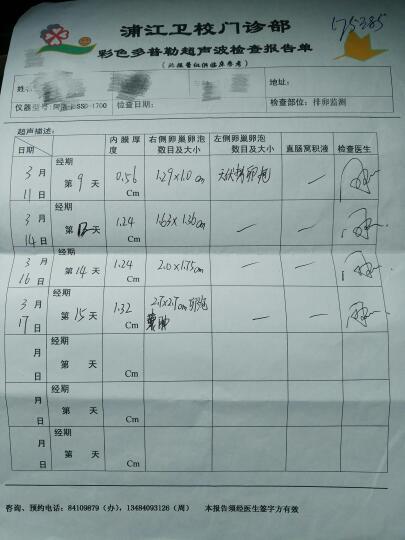 175385
浦江卫校门诊部
彩色多普勒超声波检查报告单
(此报告仅供临床参考)
姓 地址:
仪器型号:阿洛卡SSD-1700 检查日期: 检查部位:排卵监测
超声描述:
日期 经期 内膜厚度 右侧卵巢卵泡数目及大小 左侧卵巢卵泡数目及大小 直肠窝积液 检查医生
3月11日 经期第9天 0.56Cm 1.29×1.0cm — 
3月14日 经期第12天 1.24Cm 1.63×1.36cm — —
3月16日 经期第14天 1.24Cm 2.0×1.75cm — —
3月17日 经期第15天 1.32Cm — —
月日 经期第天 Cm
月日 经期第天 Cm
月日 经期第天 Cm
咨询、预约电话:84109879(办),13484093126(周) 本报告须经医生签字方有效